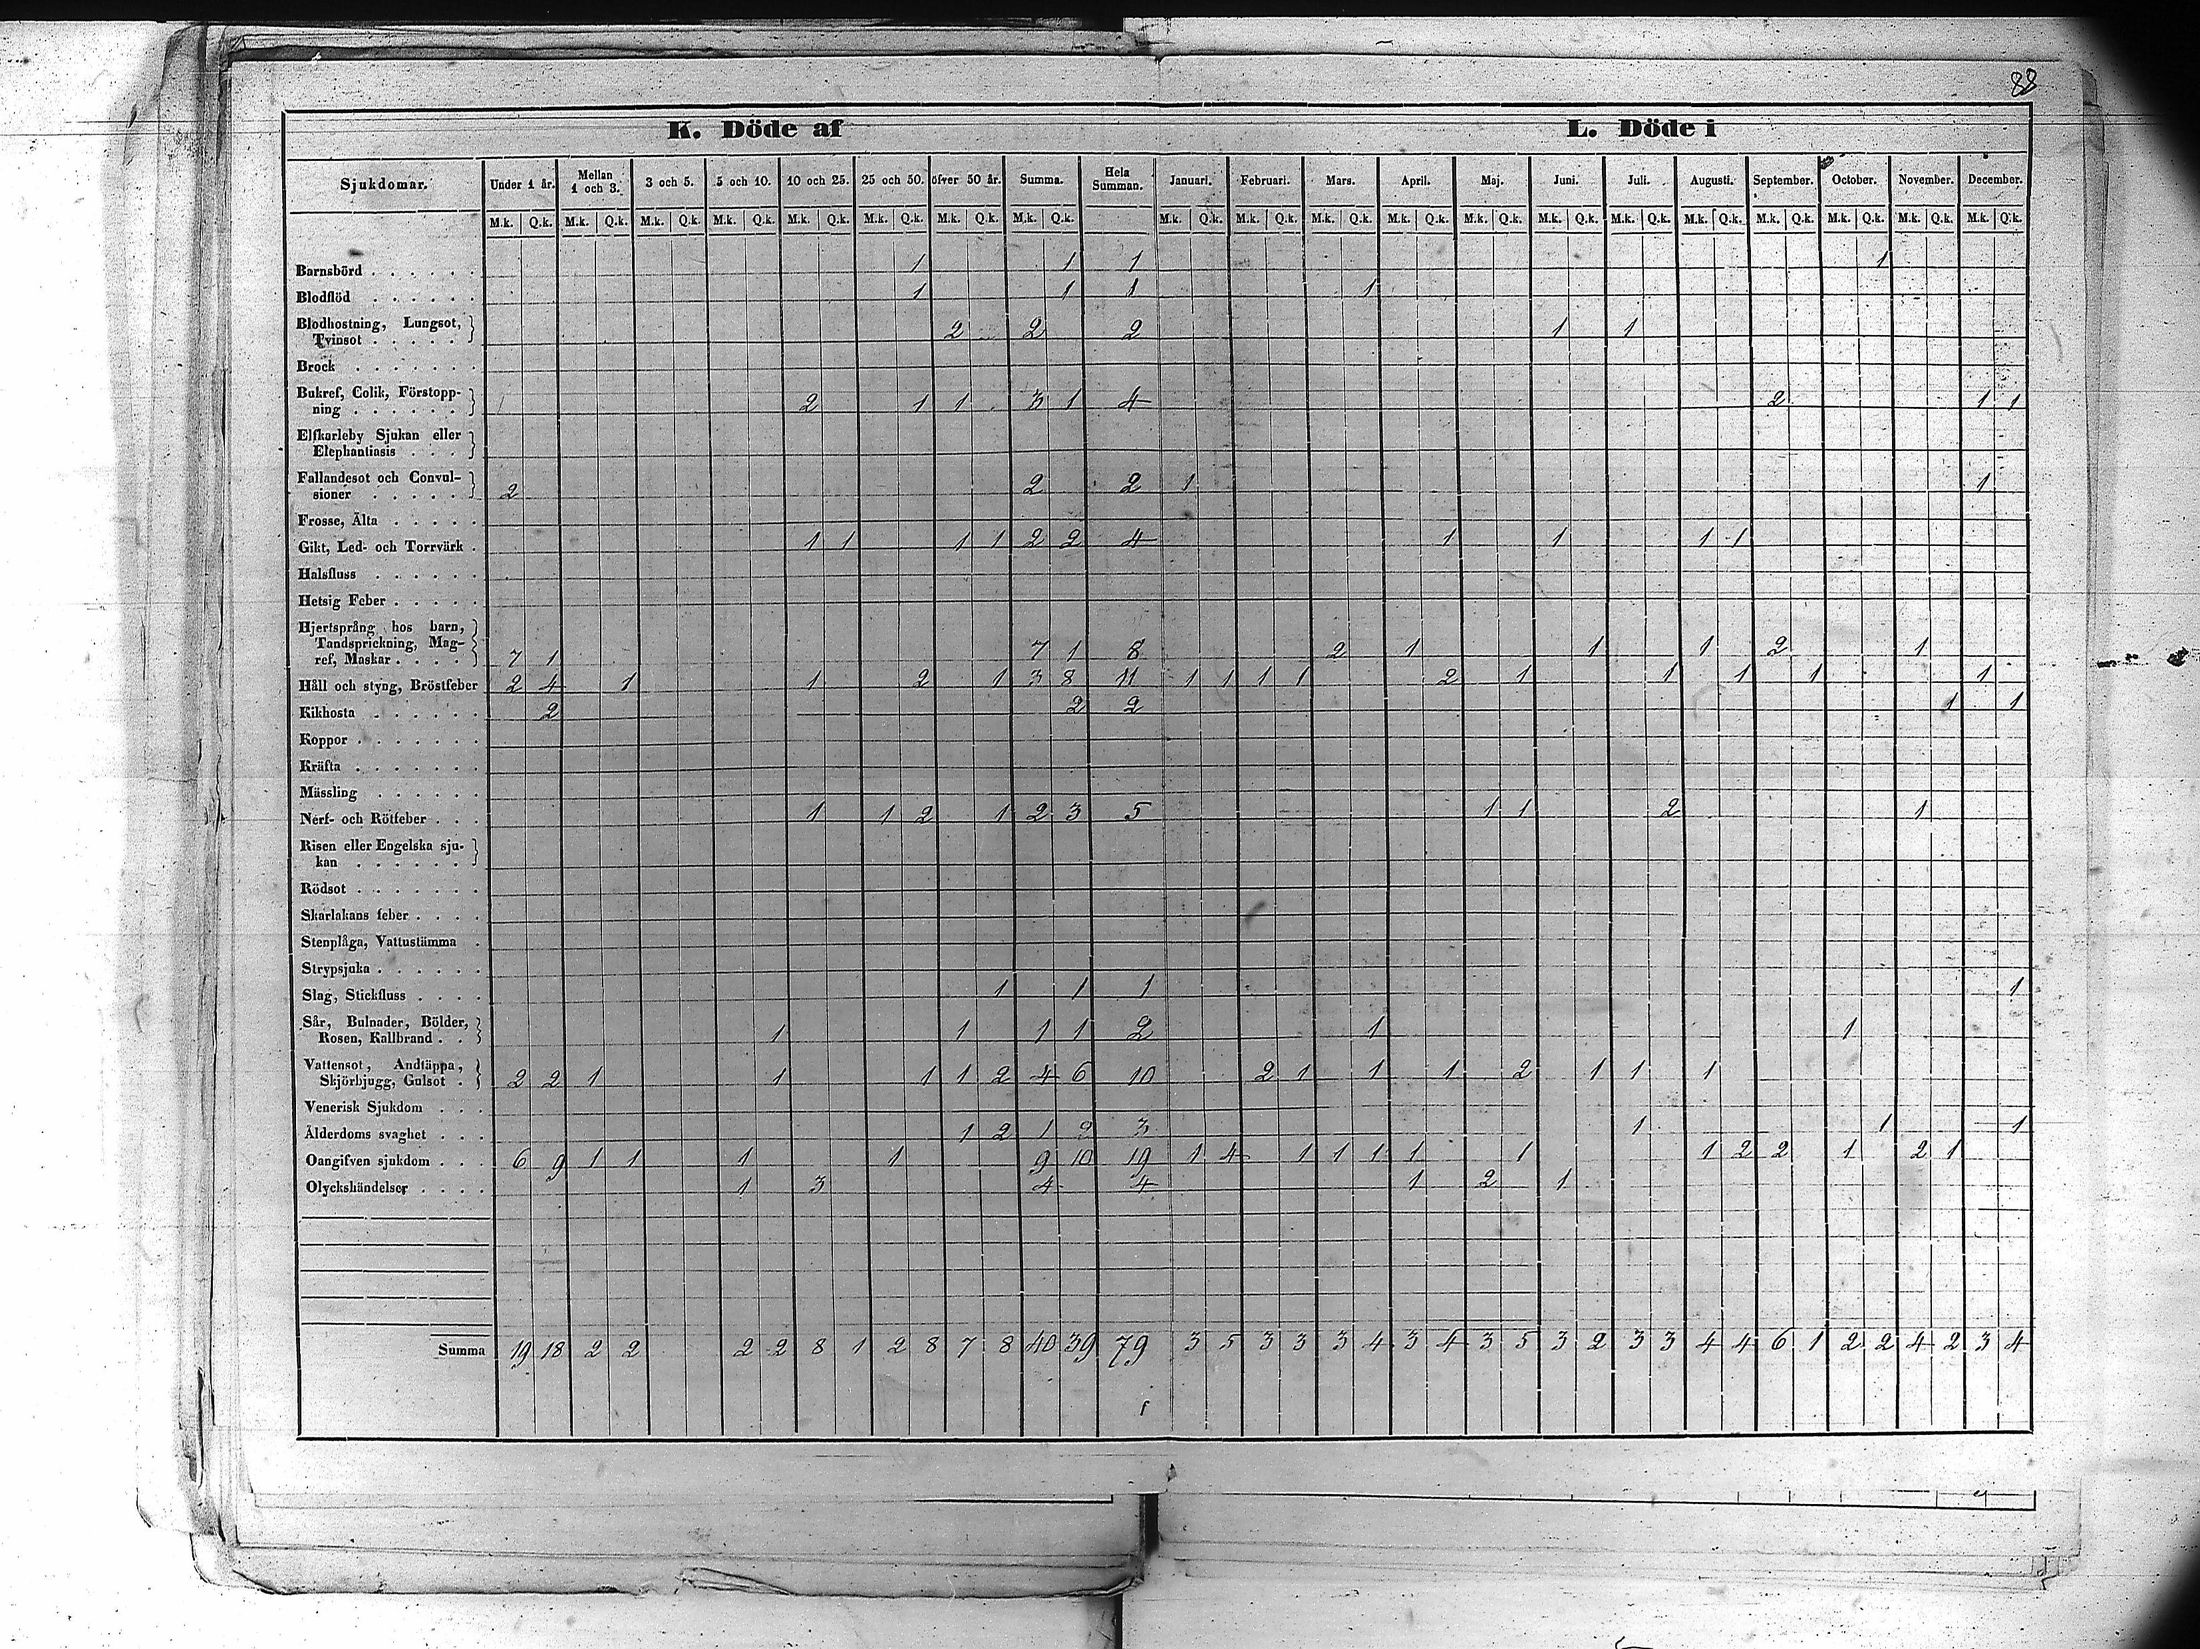 88
K. Döde af L. Döde i
Sjukdomar. Under 1 år. Mellan 1 och 3. 3 och 5. 5 och 10. 10 och 25. 25 och 50. öfver 50 år. Summa. Hela Summan. Januari. Februari. Mars. April. Maj. Juni. Juli. Augusti. September. October. November. December.
M.k. Q.k. M.k. Q.k. M.k. Q.k. M.k. Q.k. M.k. Q.k. M.k. Q.k. M.k. Q.k. M.k. Q.k. M.k. Q.k. M.k. Q.k. M.k. Q.k. M.k. Q.k. M.k. Q.k. M.k. Q.k. M.k. Q.k. M.k. Q.k. M.k. Q.k. M.k. Q.k. M.k. Q.k. M.k. Q.k.
Barnsbörd . . . . . . 1 1 1 1
Blodflöd . . . . . . 1 1 1 1
Blodhostning, Lungsot,
Tvinsot . . . . . 2 2 2 1 1
Brock . . . . . . .
Bukref, Colik, Förstopp-
ning . . . . . . 2 1 1 3 1 4 2 1 1
Elfkarleby Sjukan eller
Elephantiasis . . .
Fallandesot och Convul-
sioner . . . . . 2 2 2 1 1
Frosse, Älta . . . . .
Gikt, Led- och Torrvärk . 1 1 1 1 2 2 4 1 1 1 1
Halsfluss . . . . . .
Hetsig Feber . . . . .
Hjertsprång hos barn,
Tandsprickning, Mag-
ref, Maskar . . . . 7 1 7 1 8 2 1 1 1 2 1
Håll och styng, Bröstfeber 2 4 1 1 2 1 3 8 11 1 1 1 1 2 1 1 1 1 1
Kikhosta . . . . . . 2 2 2 1 1
Koppor . . . . . . .
Kräfta . . . . . . .
Mässling . . . . . .
Nerf- och Rötfeber . . . 1 1 2 1 2 3 5 1 1 2 1
Risen eller Engelska sju-
kan . . . . . .
Rödsot . . . . . . .
Skarlakans feber . . . .
Stenplåga, Vattustämma .
Strypsjuka . . . . . .
Slag, Stickfluss . . . . 1 1 1 1
Sår, Bulnader, Bölder,
Rosen, Kallbrand . . 1 1 1 1 2 1 1
Vattensot, Andtäppa,
Skjörbjugg, Gulsot . 2 2 1 1 1 1 2 4 6 10 2 1 1 1 2 1 1 1
Venerisk Sjukdom . . .
Ålderdoms svaghet . . . 1 2 1 2 3 1 1 1
Oangifven sjukdom . . . 6 9 1 1 1 1 9 10 19 1 4 1 1 1 1 1 1 2 2 1 2 1
Olyckshändelser . . . . 1 3 4 4 1 2 1
Summa 19 18 2 2 2 2 8 1 2 8 7 8 40 39 79 3 5 3 3 3 4 3 4 3 5 3 2 3 3 4 4 6 1 2 2 4 2 3 4